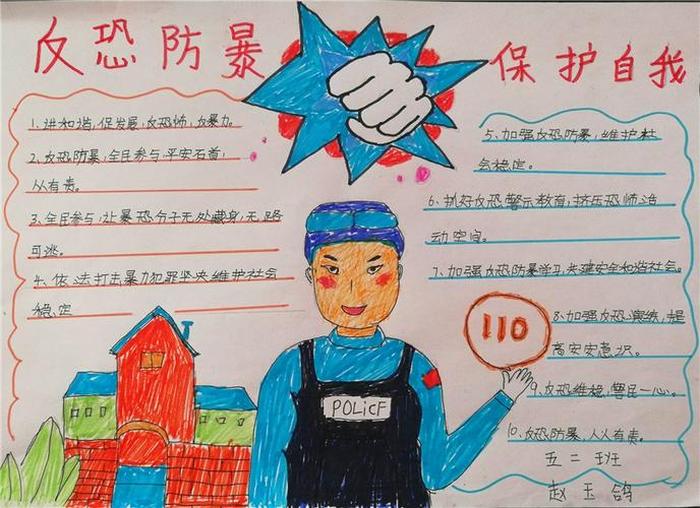 反恐防暴
保护自我
1、讲和谐,促发展,反恐怖,反暴力。
2、反恐防暴,全民参与,平安石首,
人人有责。
3、全民参与,让暴恐分子无处藏身,无路
可逃。
4、依法打击暴力犯罪坚决维护社会
稳定
5、加强反恐防暴,维护社
会稳定。
6、抓好反恐警示教育,挤压恐怖活
动空间。
7、加强反恐防暴学习,共建安全和谐社会。
8、加强反恐演练,提
高安安意识。
9、反恐维稳,警民一心。
10、反恐防暴,人人有责。
110
POLiCF
五二班
赵玉鸽